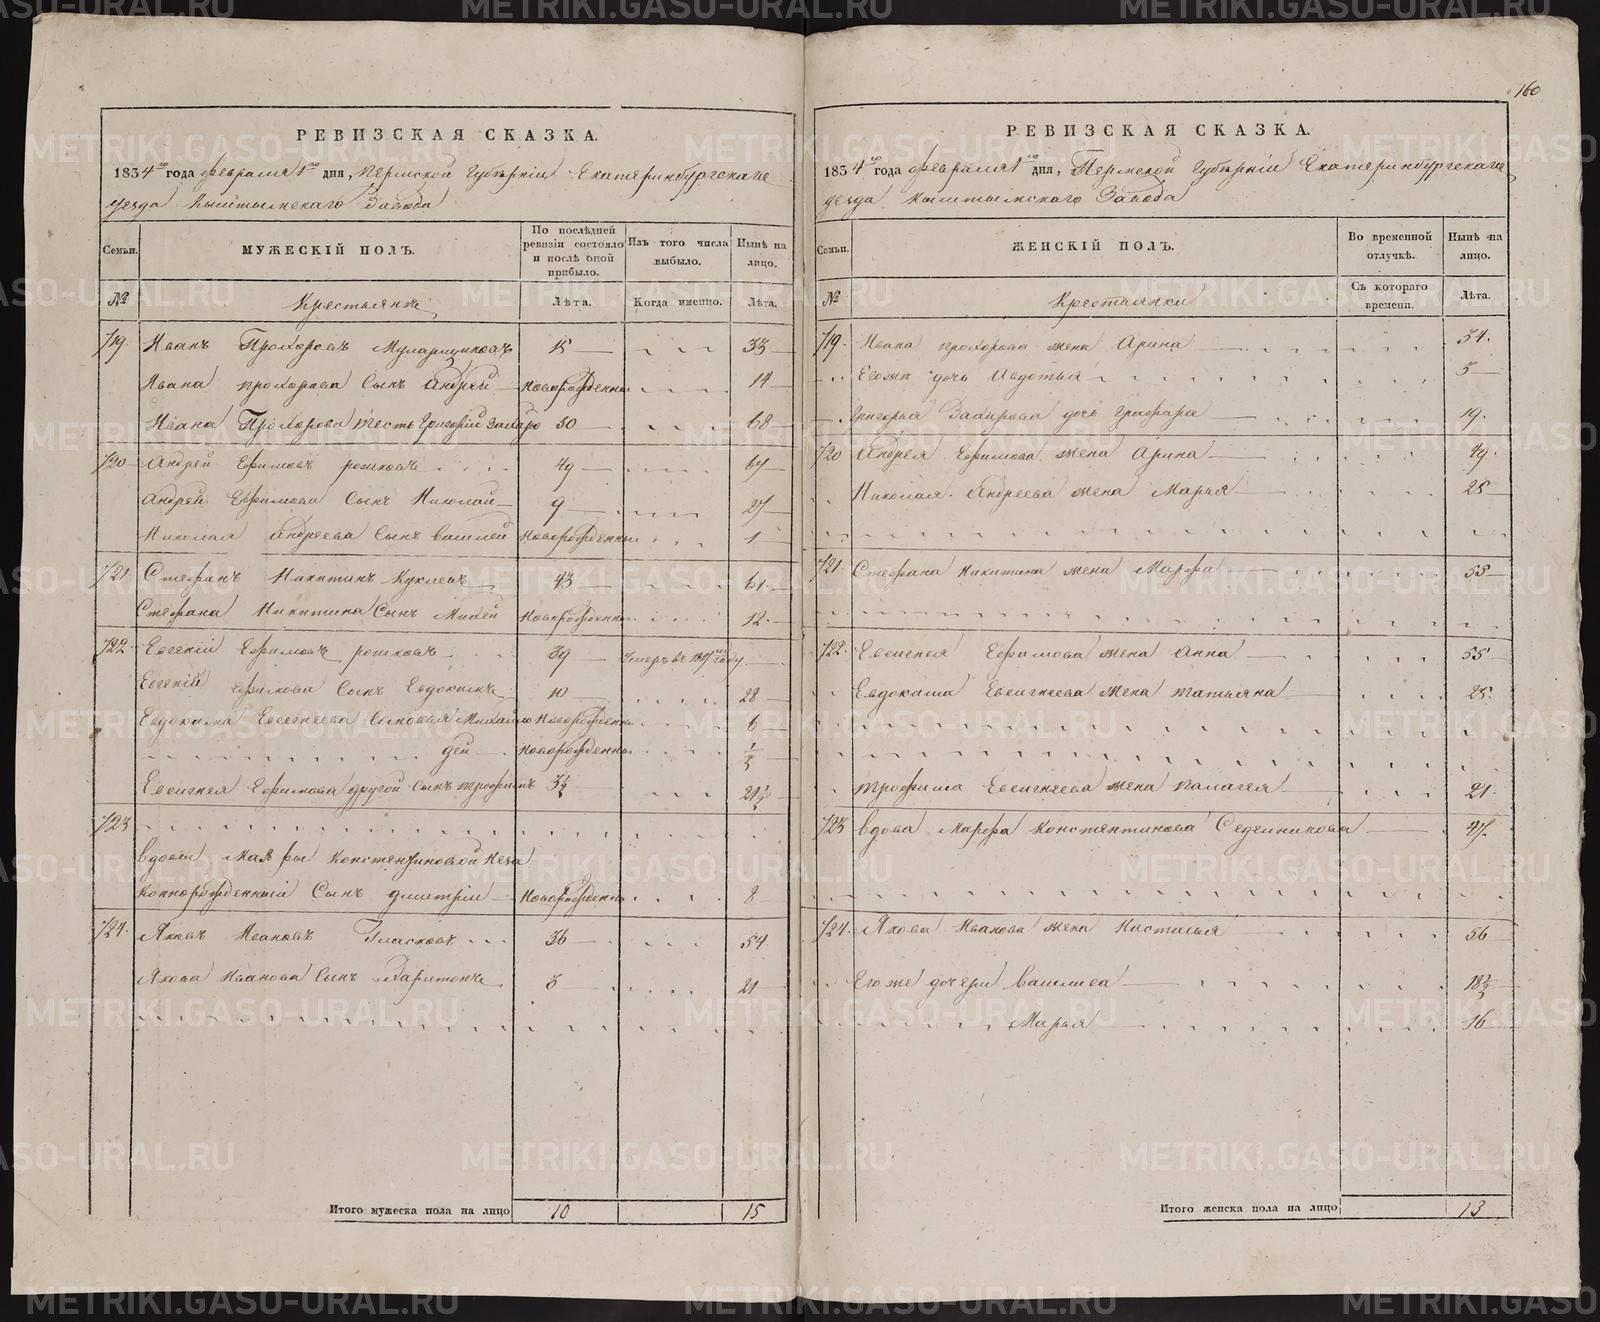 160
РЕВИЗСКАЯ СКАЗКА.
1834го года февраля 1го дня, Пермской Губернiи Екатеринбургскаго
уезда Кыштымскаго Завода
Семьи.
МУЖЕСКIЙ ПОЛЪ.
По послѣдней ревизiи состояло и послѣ оной прибыло.
Изъ того числа выбыло.
Нынѣ на лицо.
№
Крестьянъ
Лѣта.
Когда именно.
Лѣта.
719. Иванъ Прохоровъ 15 33
Ивана прохорова Сынъ андрей новорожденны 14
Ивана Прохорова тесть Григорiй Захаро 50 68
720 Андрей Ефимовъ рошковъ 49 67
Андрей Ефимова Сынъ Николай 9 27
Николая андреева Сынъ василей новорожденны 1
721. Стефанъ Никитинъ Куклевъ 43 61
Стефана Никитина Сынъ Михей новорожденны 12
722 Евгенiй Ефимовъ рошковъ 39 умеръ въ году
Евгенiй Ефимова Сынъ Евдокимъ 10 28
Евдокима Евсегнеева Сыновья Михайло новорожденны 6
новорожденны
Евсигнея Ефимова другой Сынъ трофимъ 3½ 21½
723
вдовы Марфы Констентиновой неза
коннорожденный Сынъ дмитрiи новорожденны 8
724. Яковъ Ивановъ 36 54
Якова Иванова Сынъ Харитонъ 3 21
Итого мужеска пола на лицо 10 15
РЕВИЗСКАЯ СКАЗКА.
1834го года февраля 1го дня, Пермской Губернiи Екатеринбургскаго
уезда Кыштымскаго Завода
Семьи.
ЖЕНСКIЙ ПОЛЪ.
Во временной отлучкѣ.
Нынѣ на лицо.
№
Крестьянки
Съ котораго времени.
Лѣта.
719. Ивана прохорова жена Арина 34.
Егожъ дочь Авдотья 5
Григорья Захарова дочь 19.
720 Андрея Ефимова жена Арина 49.
Николая Андреева жена Марья 25
721 Стефана Никитина жена Марфа 55
722. Евсигнея Ефимова жена Анна 55
Евдокима Евсигнеева жена татьяна 25.
трофима Евсигнеева жена палагея 21.
723 вдова Марфа Констентинова Седельникова 47.
724. Якова Иванова жена Насталья 56
Егоже дочери василиса 18½
Марья 16
Итого женска пола на лицо 13
METRIKI.GASO-URAL.RU